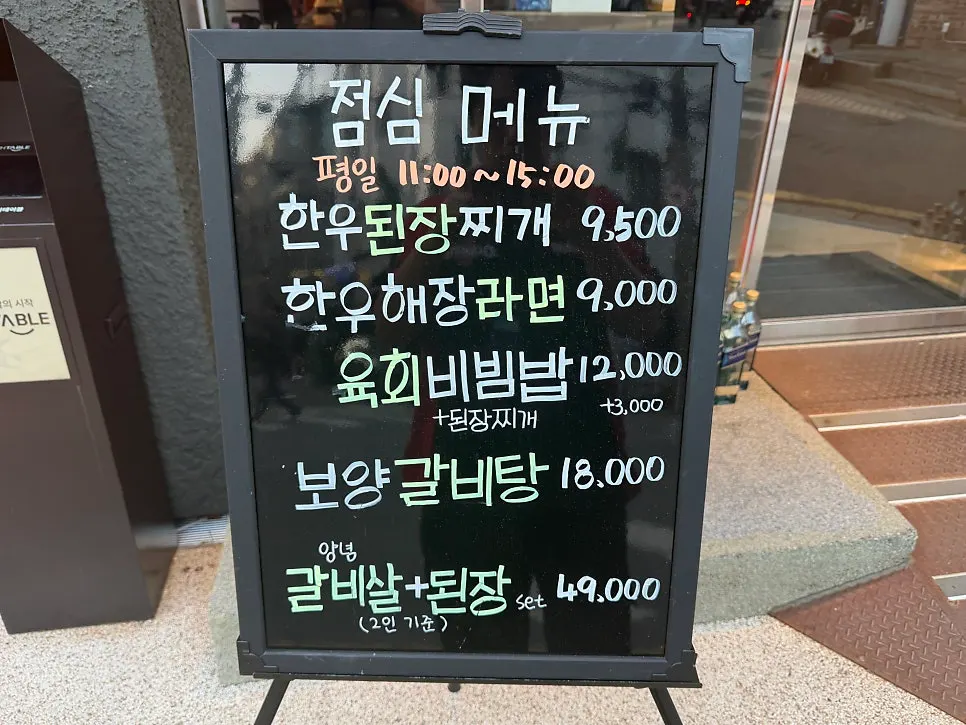 점심 메뉴
평일 11:00~15:00
한우된장찌개 9,500
한우해장라면 9,000
육회비빔밥 12,000
+된장찌개 +3,000
보양갈비탕 18,000
양념
갈비살+된장 set 49,000
(2인 기준)
의 시작
TABLE